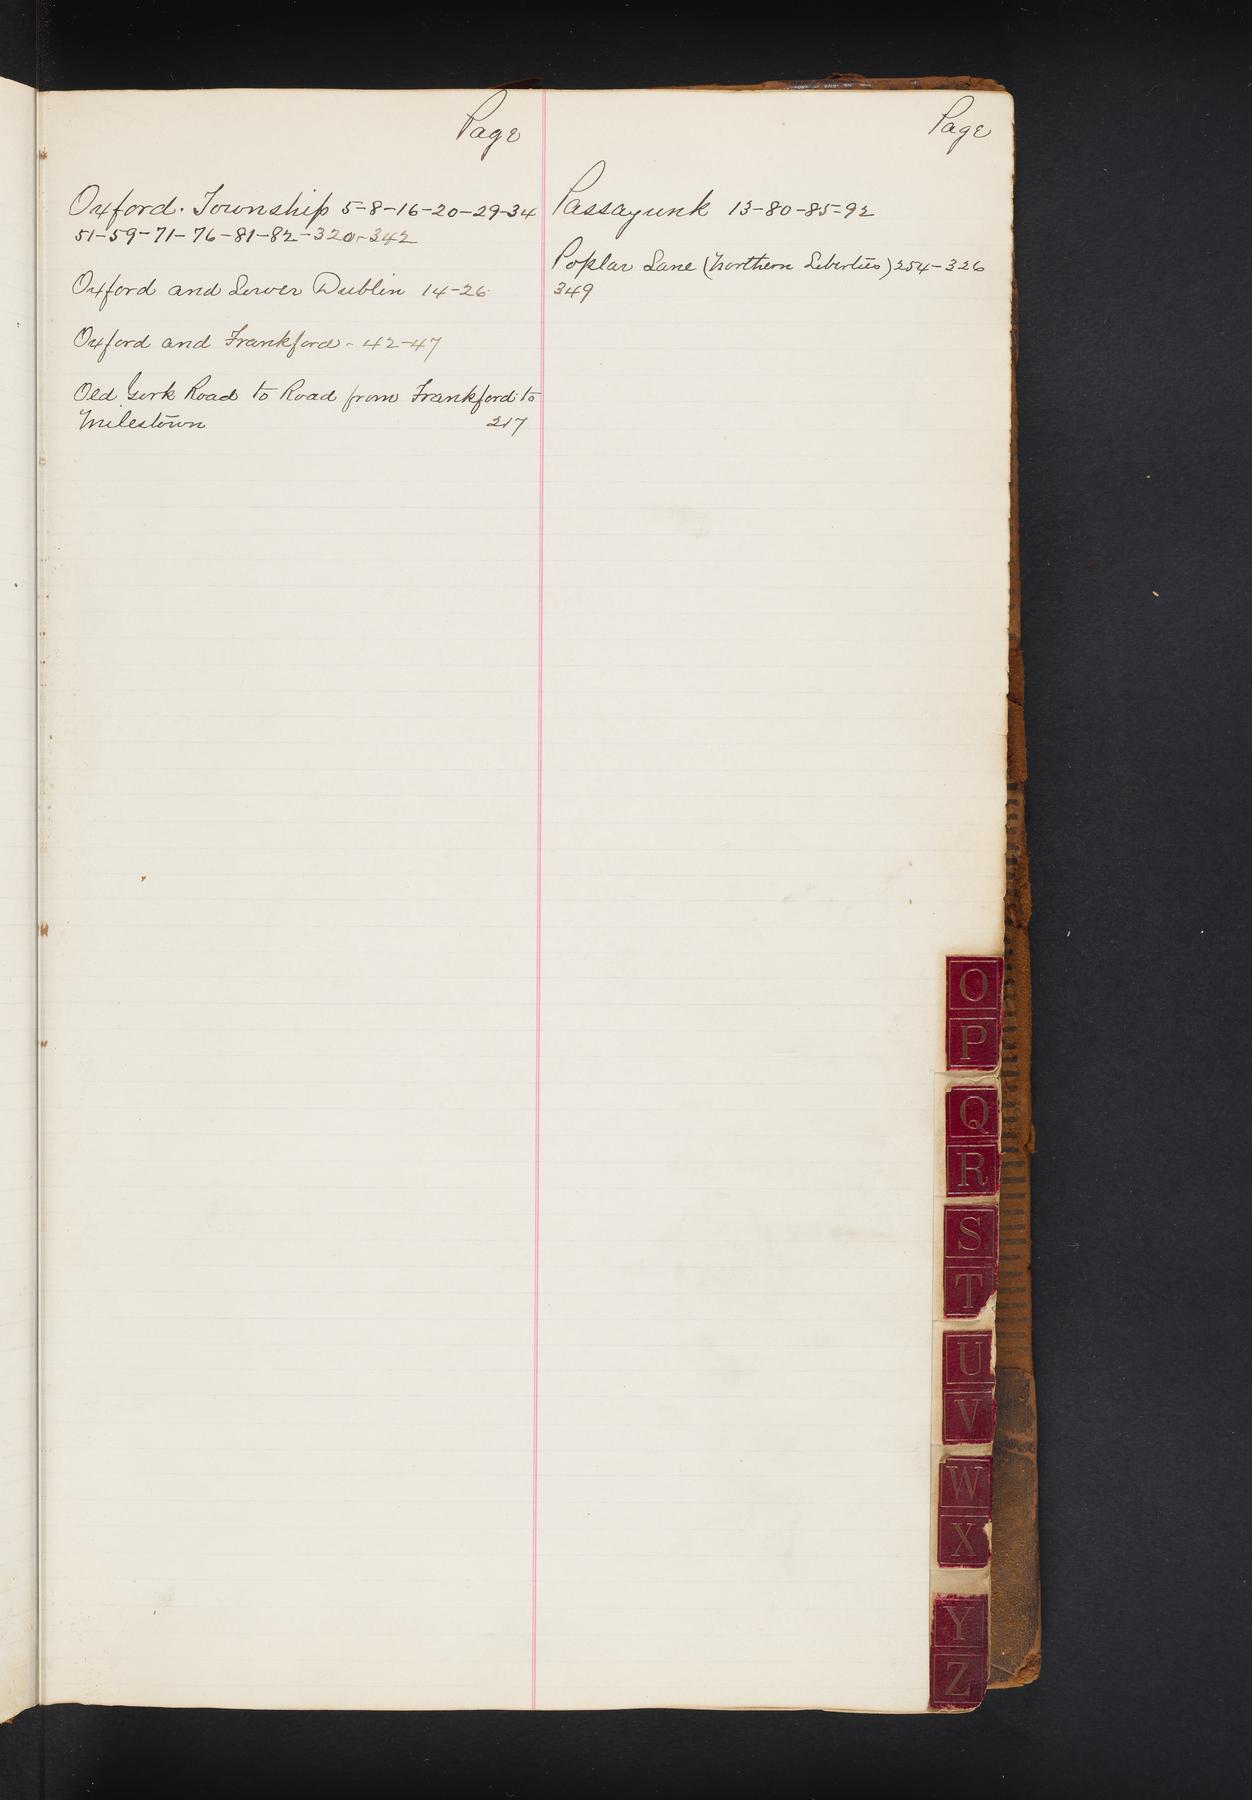 Page
Oxford. Township 5-8-16-20-29-34
51-59-71-76-81-82-320-342
Oxford and Lower Dublin 14-26
Oxford and Frankford - 42-47
Old York Road to Road from Frankford to
Milestown 217
Page
Passayunk 13-80-85-92
Poplar Lane (Northern Liberties) 254-326
349
O
P
Q
R
S
T
U
V
W
X
Y
Z